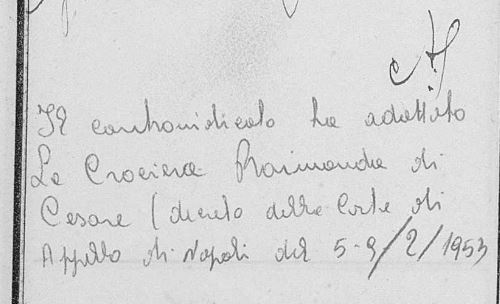 Il controindicato ha adottato
La Crociera Raimonda di
Cesare (decreto della Corte di
Appello di Napoli del 5-9/2/1953